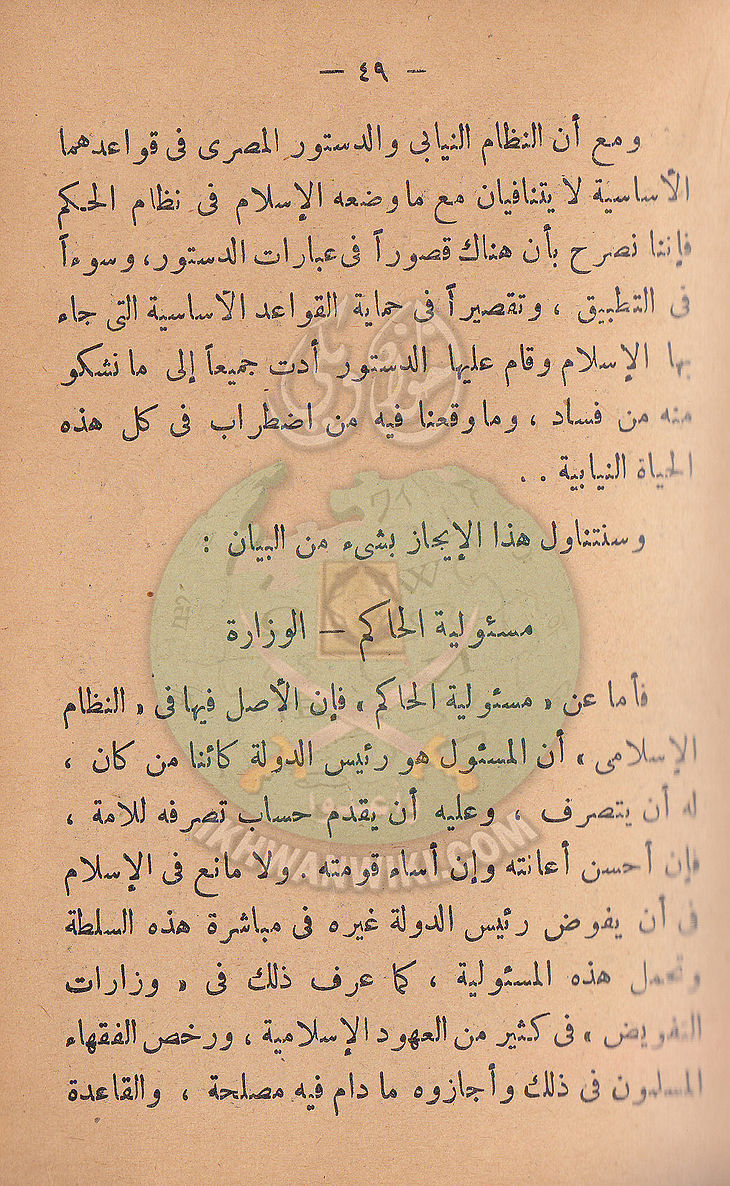 — ٤٩ —
ومع أن النظام النيابى والدستور المصرى فى قواعدهما
الأساسية لا يتنافيان مع ماوضعه الإسلام فى نظام الحكم
فإننا نصرح بأن هناك قصوراً فى عبارات الدستور، وسوءاً
فى التطبيق ، وتقصيراً فى حماية القواعد الأساسية التى جاء
بها الإسلام وقام عليها الدستور أدت جميعاً إلى مانشكو
منه من فساد ، وماوقعنا فيه من اضطراب فى كل هذه
الحياة النيابية . .
وسنتناول هذا الإيجاز بشىء من البيان :
مسئولية الحاكم — الوزارة
فأما عن « مسئولية الحاكم » فإن الأصل فيها فى « النظام
الإسلامى » أن المسئول هو رئيس الدولة كائنا من كان ،
له أن يتصرف ، وعليه أن يقدم حساب تصرفه للامة ،
فإن أحسن أعانته وإن أساء قومته . ولا مانع فى الإسلام
فى أن يفوض رئيس الدولة غيره فى مباشرة هذه السلطة
وتحمل هذه المسئولية ، كما عرف ذلك فى « وزارات
التفويض » فى كثير من العهود الإسلامية ، ورخص الفقهاء
المسلمون فى ذلك وأجازوه مادام فيه مصلحة ، والقاعدة
IKHWANWIKI.COM